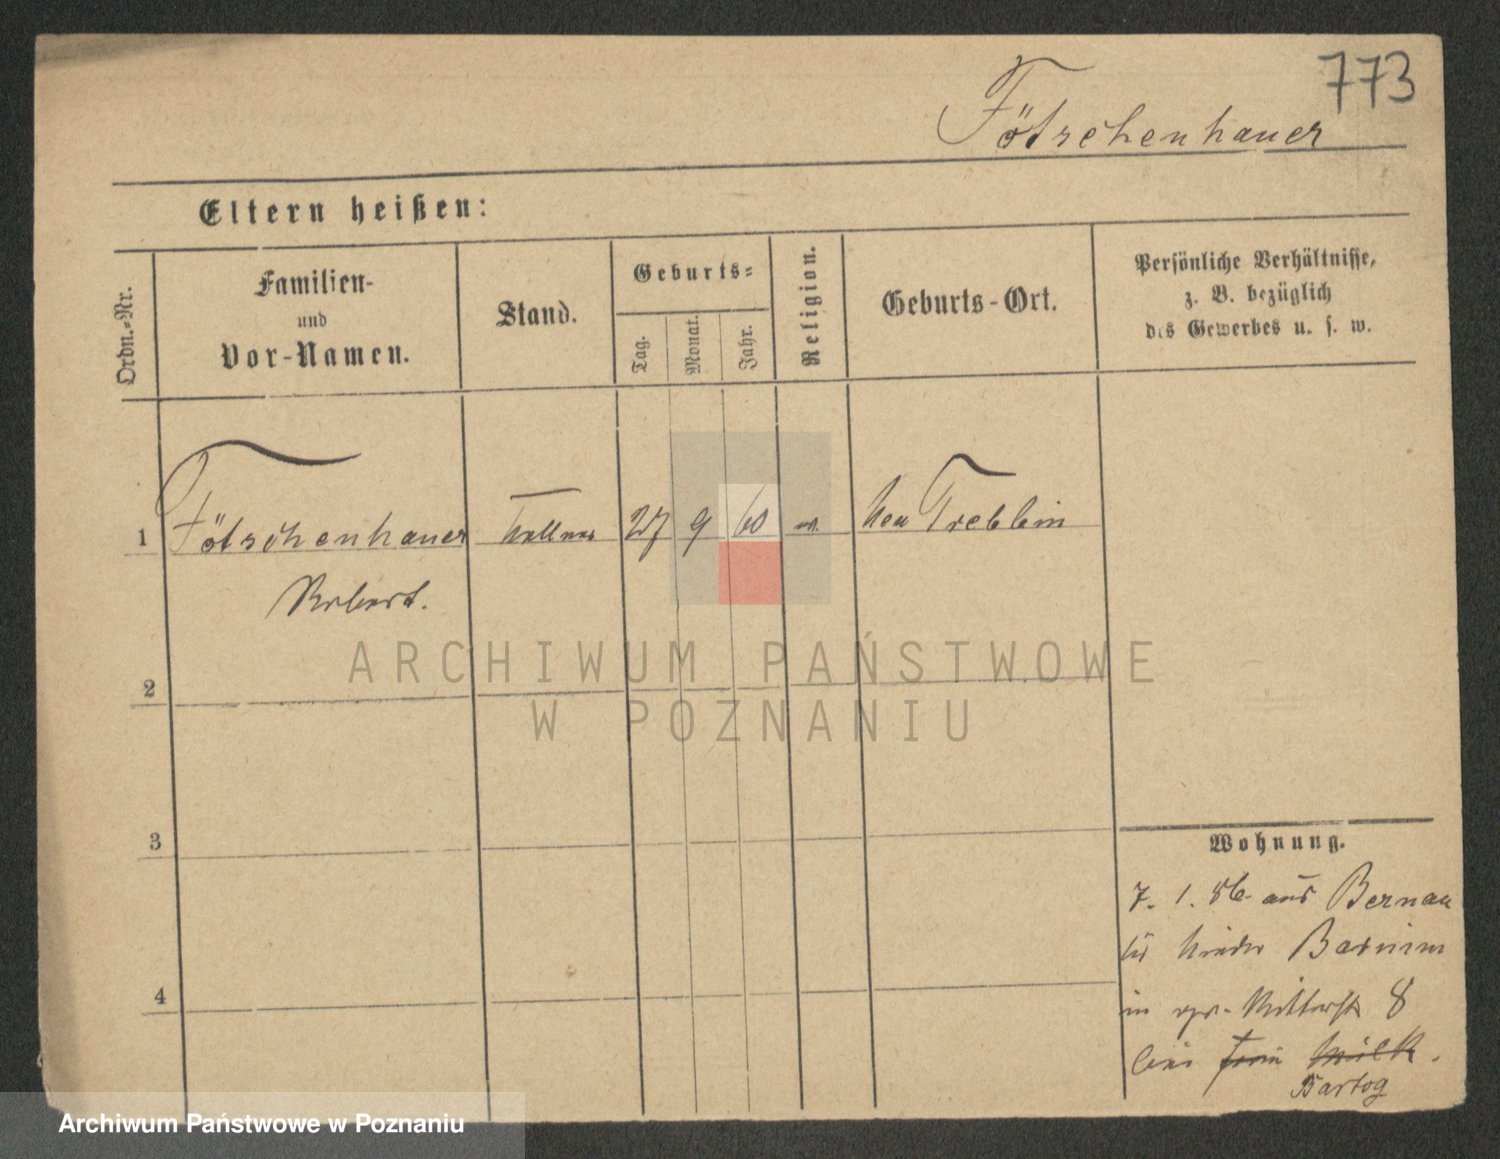 773
Fötschenhauer
Eltern heißen:
Ordn.-Nr.
Familien-
und
Vor-Namen.
Stand.
Geburts-
Tag.
Monat.
Jahr.
Religion.
Geburts-Ort.
Persönliche Verhältnisse,
z. B. bezüglich
des Gewerbes u. s. w.
1 Fötschenhauer Kellner 27 9 60 Neu Trebbin
Robert.
2
3
4
Wohnung.
7. 1. 86 aus Bernau
Barnim
in 8
bei Frau
Bartog
ARCHIWUM PAŃSTWOWE
W POZNANIU
Archiwum Państwowe w Poznaniu